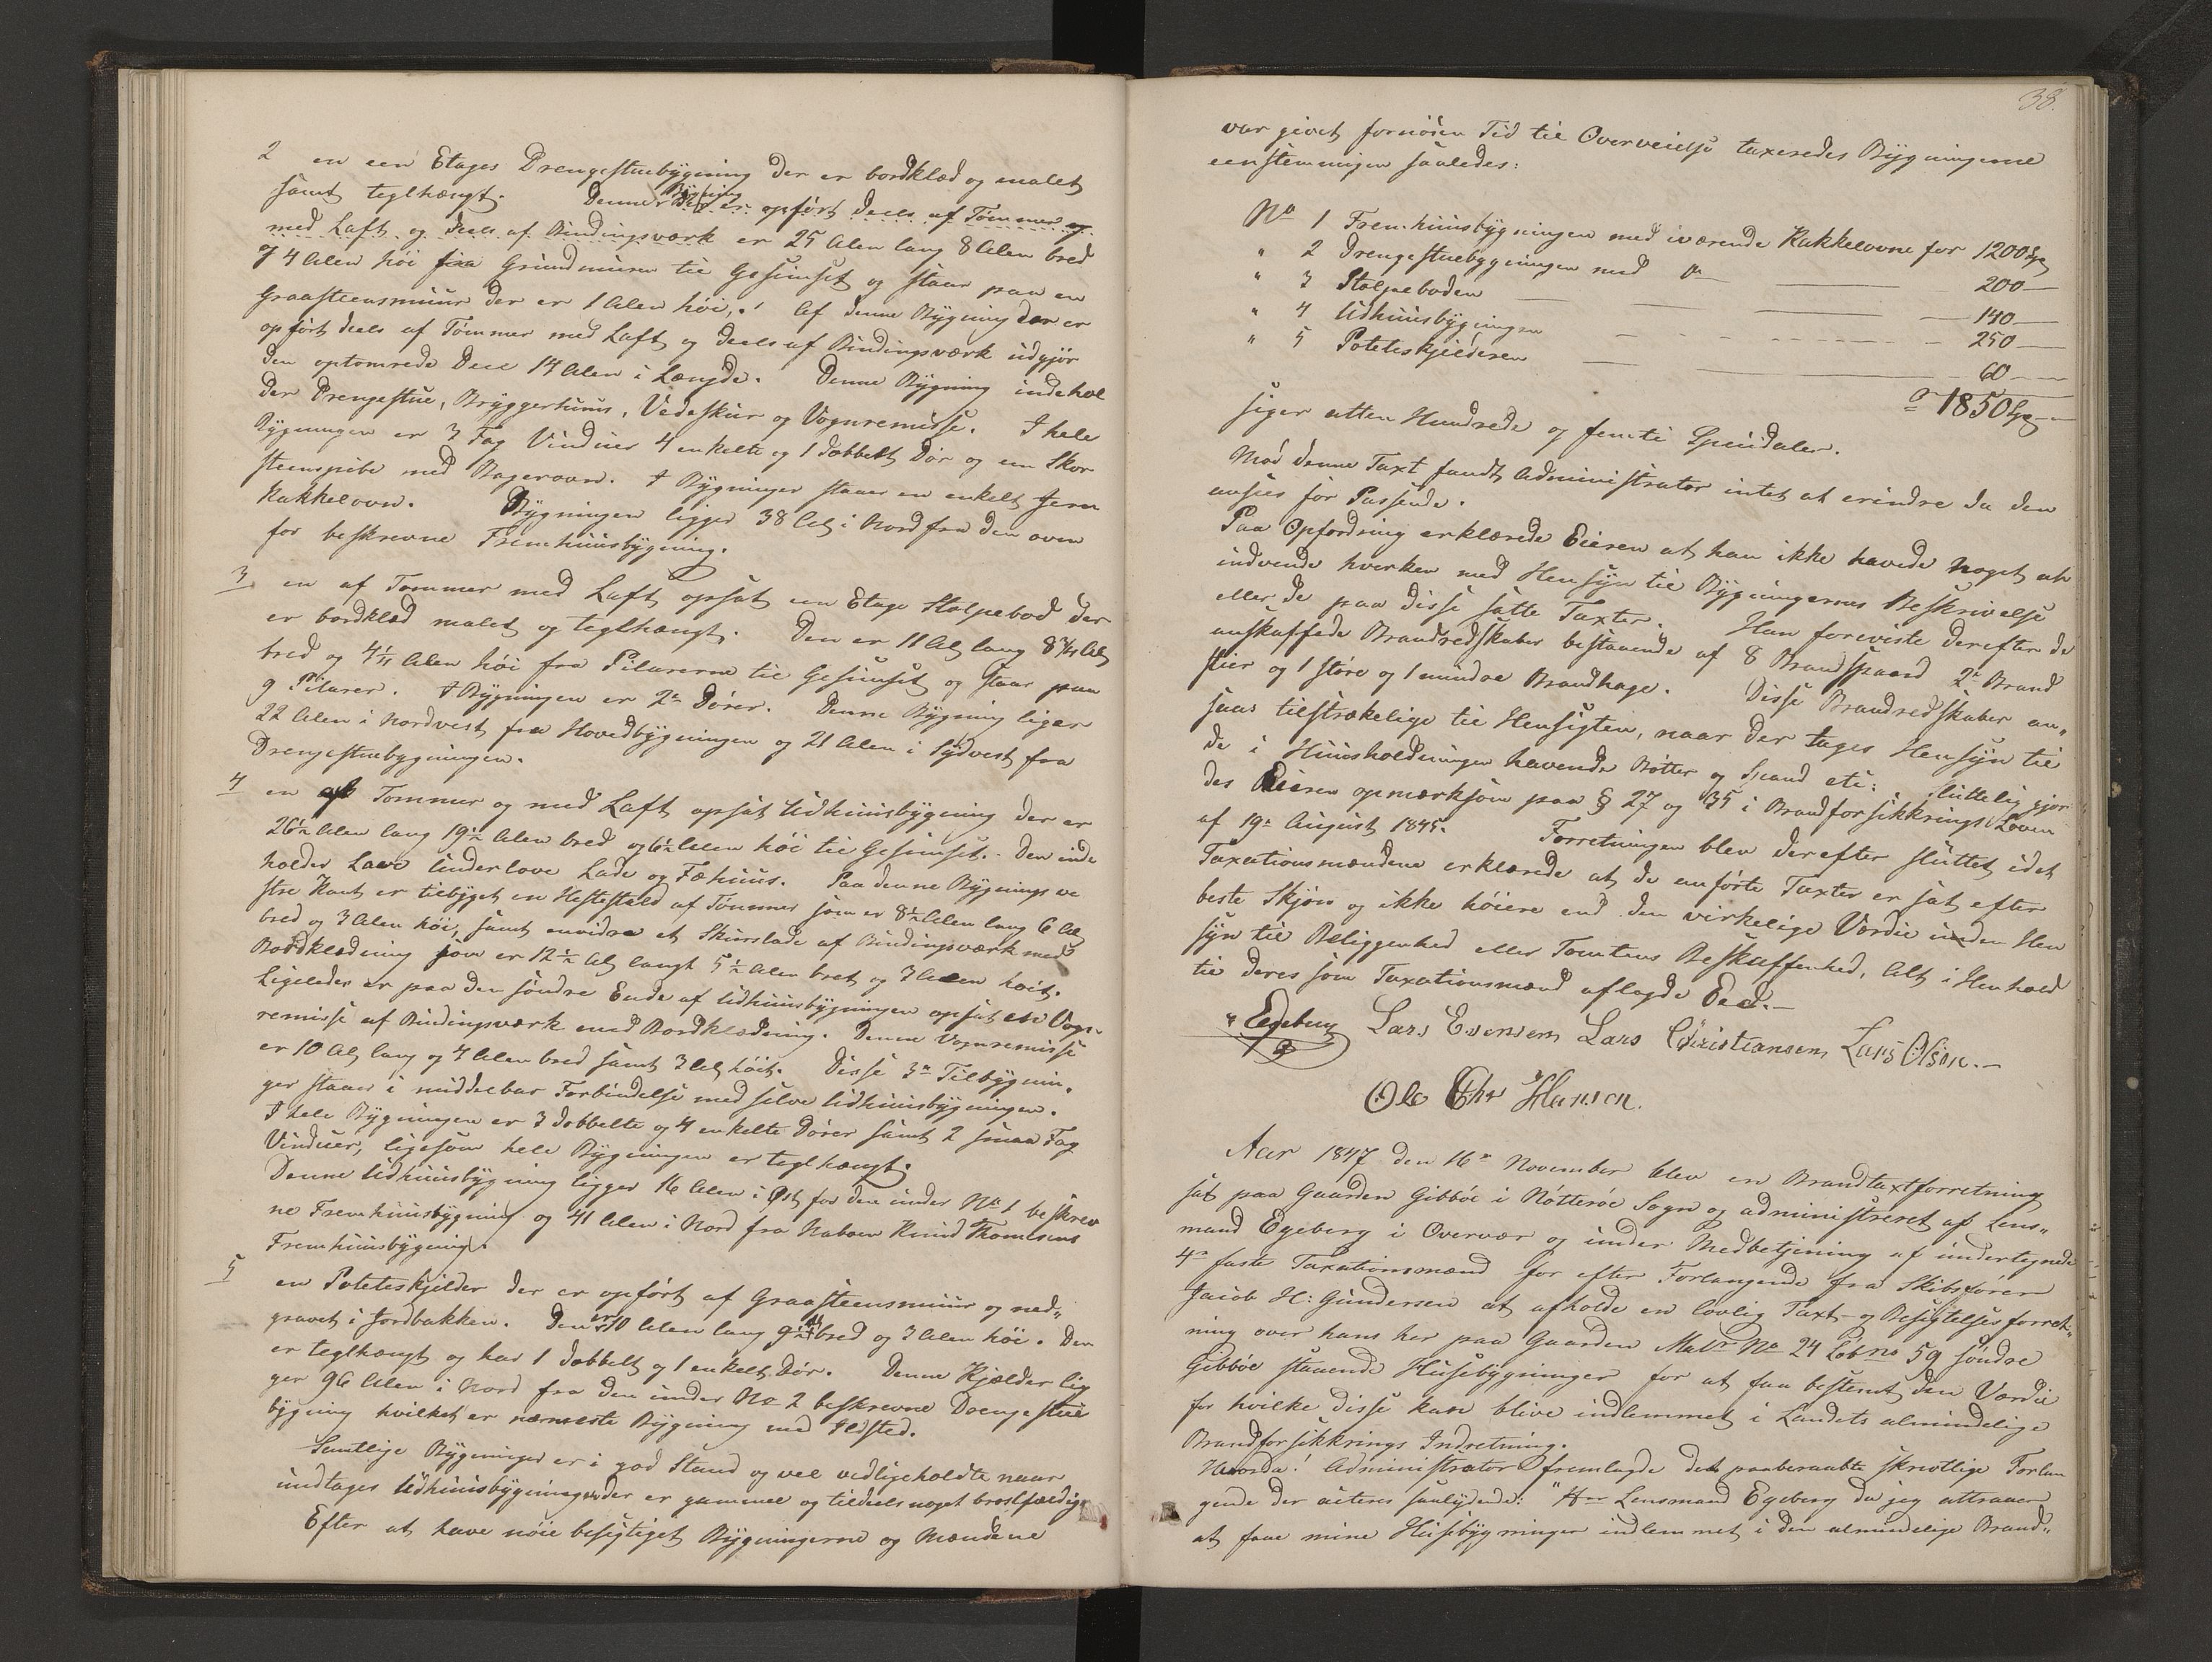 2 en een Etages Drengestuebygning der er bordklæd og malet
samt teglhængt. Denne Bygning der er opført deels af Tømmer og
med Laft og deels af Bindingsværk er 25 Alen lang 8 Alen bred
og 4 Alen høi fra Grundmuren til Gesimset og staar paa en
Graasteensmuur der er 1 Alen høi,. Af denne Bygning der er
opført deels af Tømmer med Laft og deels af Bindingsværk udgjør
den optomrede Deel 14 Alen i Længde. Denne Bygning indehol
der Drengestue, Bryggerhuus, Vedeskur og Vognremisse. I hele
Bygningen er 3 Fag Vinduer 4 enkelte og 1 dobbelt Dør og een Skor
steenspibe med Bagerovn. I Bygningen staaer en enkelt Jern
Kakkelovn. Bygningen ligger 38 Al i Nord fra den oven
for beskrevne Fremhuusbygning.
3 en af Tømmer med Laft opsat een Etage Stolpebod der
er bordklæd malet og teglhængt. Den er 11 Al lang 8 3/4 Al
bred og 4 1/4 Alen høi fra Pilarerne til Gesimset og staar paa
9 Pilarer. I Bygningen er 2de Dører. Denne Bygning liger
22 Alen i Nordvest fra Hovedbygningen og 21 Alen i Sydvest fra
Drengestuebygningen.
4 en af Tømmer og med Laft opsat Udhuusbygning der er
26 1/2 Alen lang 19 1/2 Alen bred og 6 1/2 Alen høi til Gesimset. Den inde
holder Lave Underlove Lade og Fæhuus. Paa denne Bygnings ve
stre Kant er tilbyget en Hestestald af Tømmer som er 8 1/2 Alen lang 6 Al
bred og 3 Alen høi, samt envidre et Skurslade af Bindingsværk med
Bordklædning som er 12 1/2 Al langt 5 1/2 Alen bret og 3 Alen høit.
Ligeledes er paa den søndre Ende af Udhuusbygningen opsat en Vogn
remisse af Bindingsværk med Bordklædning. Denne Vognremisse
er 10 Al lang og 7 Alen bred samt 3 Al høit. Disse 3de Tilbygnin,
ger staaer i middelbar Forbindelse med selve Udhuusbygningen.
I hele Bygningen er 3 dobbelte og 4 enkelte Dører samt 2 smaa Fag
Vinduer, ligesom hele Bygningen er teglhængt.
Denne Udhuusbygning ligger 16 Alen i Øst for den under No 1 beskrev
ne Fremhuusbygning og 41 Alen i Nord fra Naboen Knud Thomesens
Fremhuusbygning.
5 en Poteteskjelder der er opført af Graasteensmuur og ned"
gravet i Jordbakken. Den er 10 Alen lang 9 1/2 Al bred og 3 Alen høi. Den
er teglhængt og har 1 dobbelt og 1 enkelt Dør. Denne Kjælder lig
ger 96 Alen i Nord fra den under No 2 beskrevne Drengestue
bygning hvilket er nærmeste Bygning med Ildsted.
Samtlige Bygninger er i god Stand og vel vedligeholdte naar
undtages Udhuusbygningen der er gammel og tildeels noget brøstfældig
Efter at have nøie besigtiget Bygningerne og Mændene
38.
var givet fornøden Tid til Overveielse taxeredes Bygningerne
eenstemmigen saaledes:
No 1 Fremhuusbygningen med iværende Kakkelovne for 1200 Sp
" 2 Drengestuebygningen med do 200
" 3 Stolpeboden 140
" 4 Udhuusbygningen 250
" 5 Poteteskjelderen 60
= 1850 Sp
siger atten Hundrede og femti Specidaler.
Mod denne Taxt fandt Administrator intet at erindre da den
ansees for Passende.
Paa Opfordring erklærede Eieren at han ikke havde noget at
indvende hverken med Hensyn til Bygningernes Beskrivelse
eller de paa disse satte Taxter. Han foreviste derefter de
anskaffede Brandredskaber bestaaende af 8 Brandspand 2de Brand
stier og 1 større og 1 mindre Brandhage. Disse Brandredskaber an,
saas tilstrækelige til Hensigten, naar der tages Hensyn til
de i Huusholdningen havende Bøtter og Spand etc: Sluttelig gjor
des Eieren opmærksom paa § 27 og 35 i Brandforsikkrings Loven
af 19de August 1845. Forretningen blev derefter sluttet idet
Taxationsmændene erklærede at de anførte Taxter er sat efter
beste Skjøn og ikke høiere end den virkelige Værdie uden Hen
syn til Beliggenhed eller Tomtens Beskaffenhed, Alt i Henhold
til deres som Taxationsmænd aflagde Eed.—
Egeberg Lars Evensen Lars Christiansen Lars Olsen.—
Ole Chr Hansen.
Aar 1847 den 16de November blev en Brandtaxtforretning
sat paa Gaarden Gibbøe i Nøtterøe Sogn og administreret af Lens"
mand Egeberg i Overvær og under Medbetjening af undertegnede
4de faste Taxationsmænd for efter Forlangende fra Skibsfører
Jacob H: Gundersen at afholde en lovlig Taxt- og Besigtelsesforret"
ning over hans her paa Gaarden Matr No 24 Løb no 59 søndre
Gibbøe staaende Husebygninger for at faa bestemt den Værdie
for hvilke disse kan blive indlemmet i Landets almindelige
Brandforsikkrings Indretning.
Hvorda! Administrator fremlagde det paaberaabte skriftlige Forlan
gende der aiteres saalydende: "Hr Lensmand Egeberg da jeg attraaer
at faae mine Husebygninger indlemmet i den almindelige Brand"